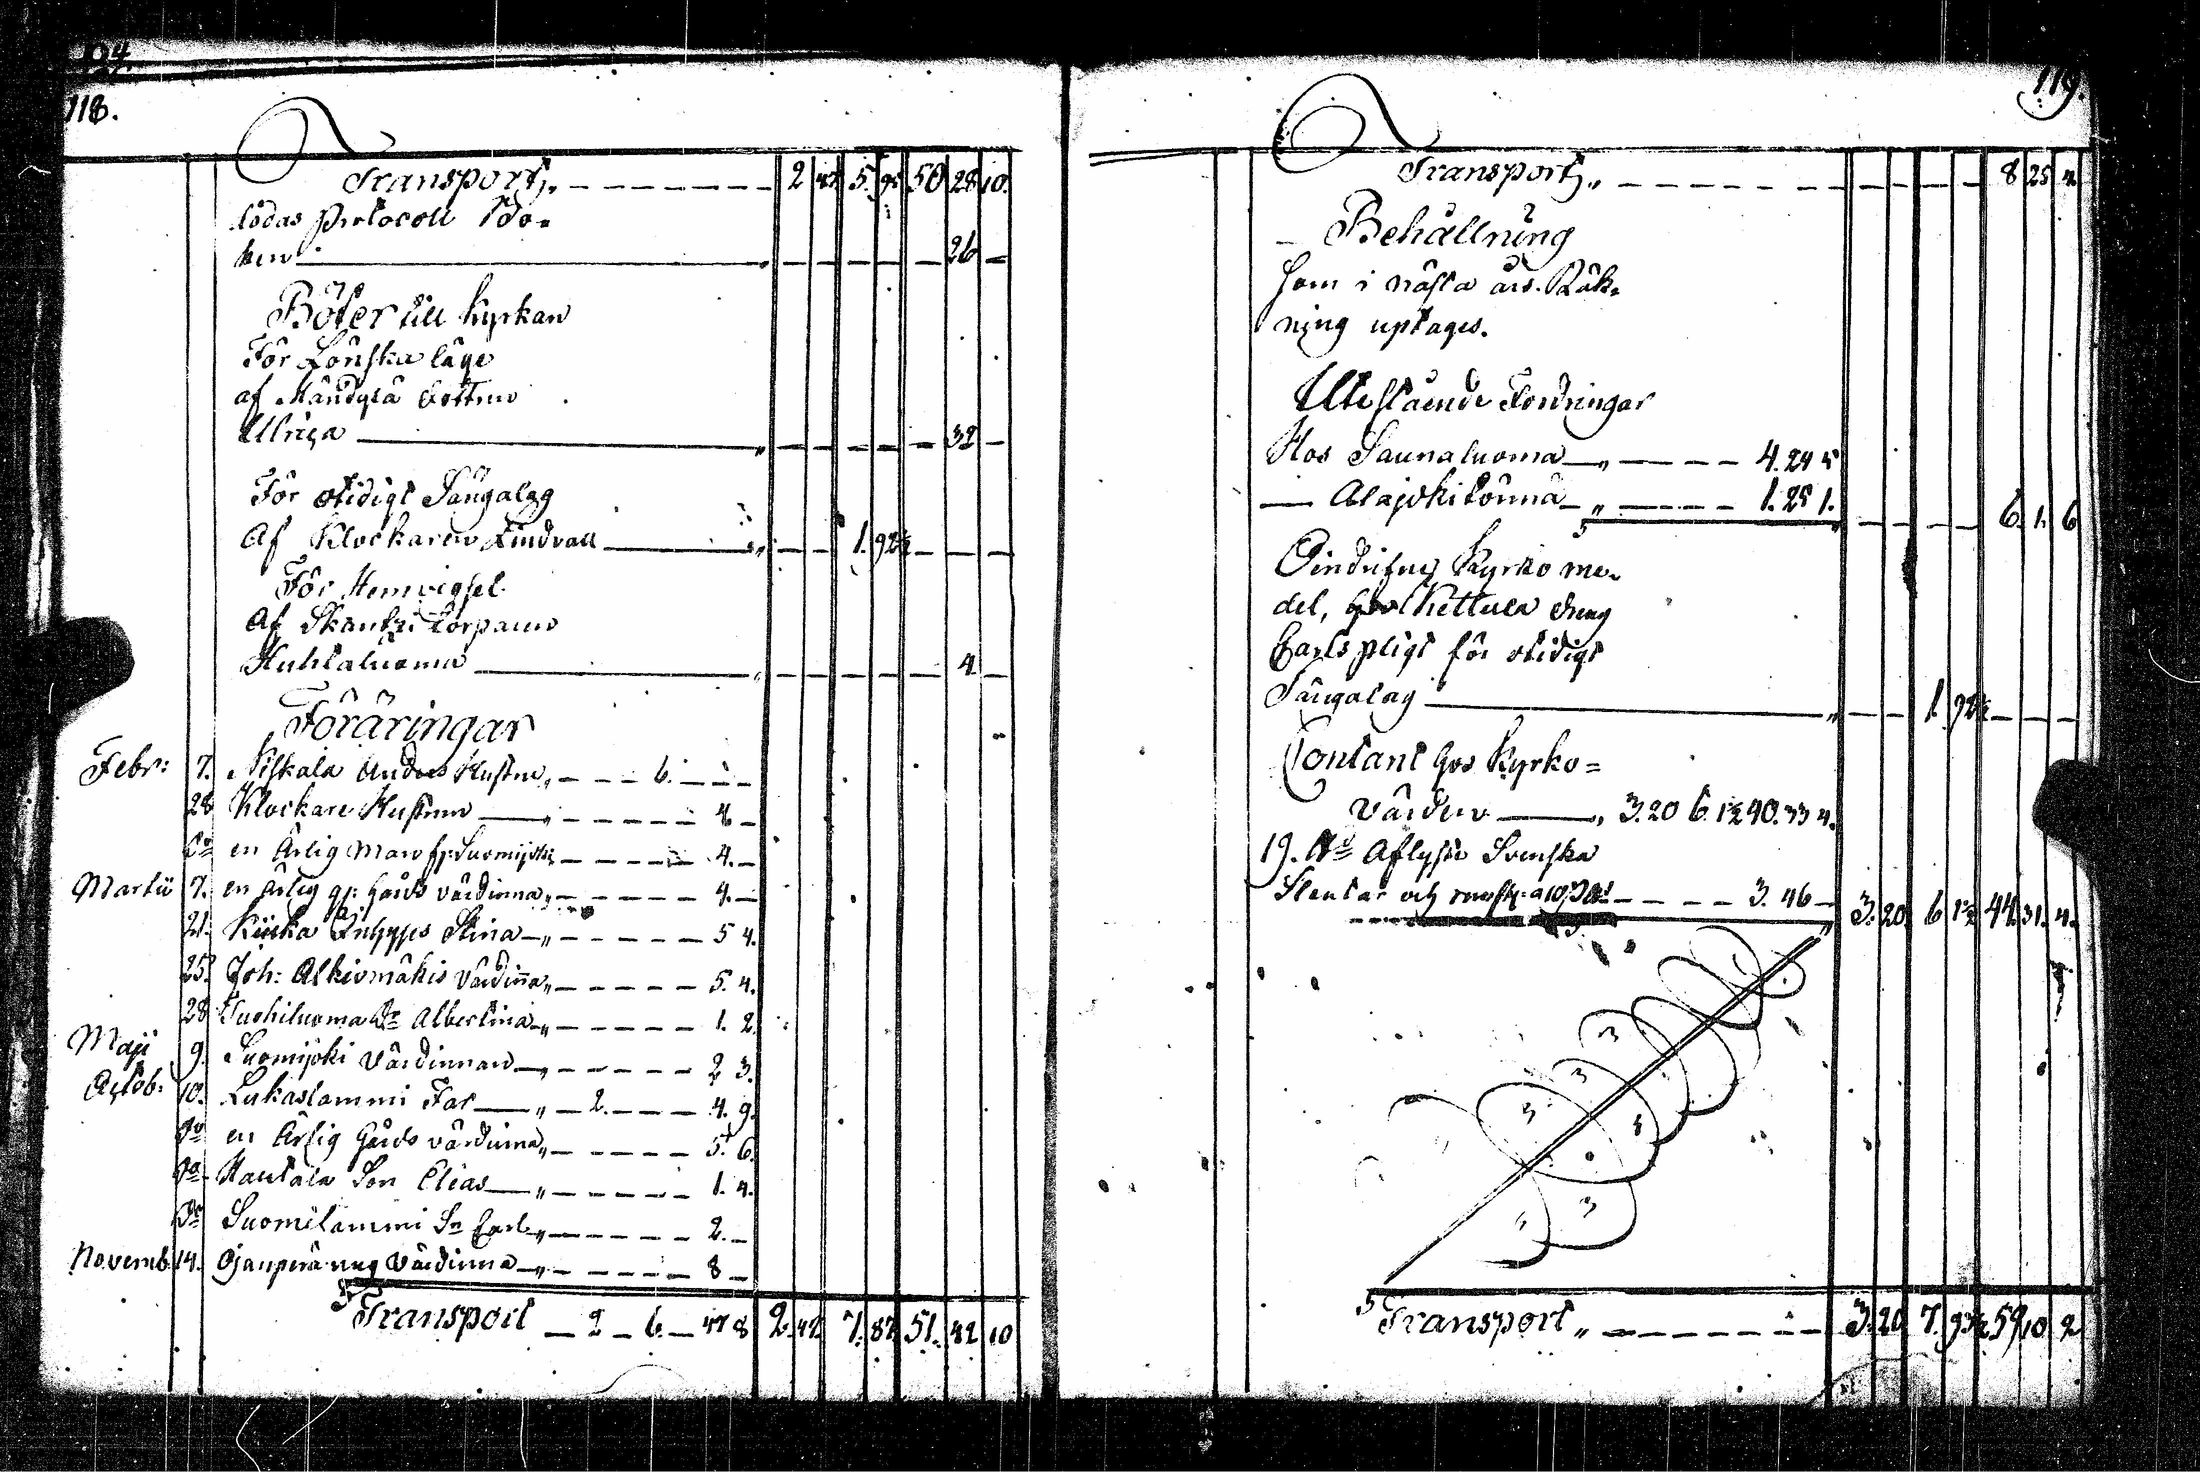 118.
Transport „ 2 42 5. 95 50 28 10.
lödas protocoll Bo-
ken 26 —
Böter till kyrkan
För Lönska läge
af Mändylä dottren
Ulrica 32 —
För otidigt Sängalag
Af Klockaren Lindvall 1. 92½
För Hemvigsel
Af Skantzi torparen
Huhtaluoma 4
Föräringar
Febr: 7. Niskala Anders Hustru „ 6. — —
28 Klockare Hustrun „ 4 —
Do en Ärlig Man fr: Suomijoki 4. —
Martii 7. en ärlig gårds värdinna „ 4. —
21. Kiska Stina „ 5 4.
25. Joh: Alkiomäkis Värdinna „ 5. 4.
28 Tuohiluoma Dr Albertina „ 1. 2.
Maji 9. Suomijoki Värdinnan „ 2 3.
Octob: 10. Lukaslammi Far „ 2. 4. 9.
Do en Ärlig Gårds värdinna „ 5. 6.
Do Hautala Son Elias „ 1. 4.
Do Suomilammi Sn Carl „ 2. —
Novemb 14. Ojanperä ung Värdinna „ 8 —
Transport — 2 — 6. — 47 8 2. 42 7. 87 51. 42 10
119.
Transport „ 8 25 4.
Behållning
Som i nästa års Räk-
ning uptages.
Utestående Fordringar
Hos Saunaluoma „ 4. 24 5
— Alajokitönnä „ 1. 25 1. 6. 1. 6
Oindrifne Kyrko me-
del, hos Kettula dräng
Carls pligt för otidigt
Sängalag „ 1. 92½
Contant hos Kyrko=
Värden „ 3. 20 6. 1½ 40. 33 4.
19. st Aflyste Svenska
Slantar 3. 46 — 3. 20. 6 1½ 44. 31. 4.
Transport „ 3. 20 7. 93½ 59 10 2